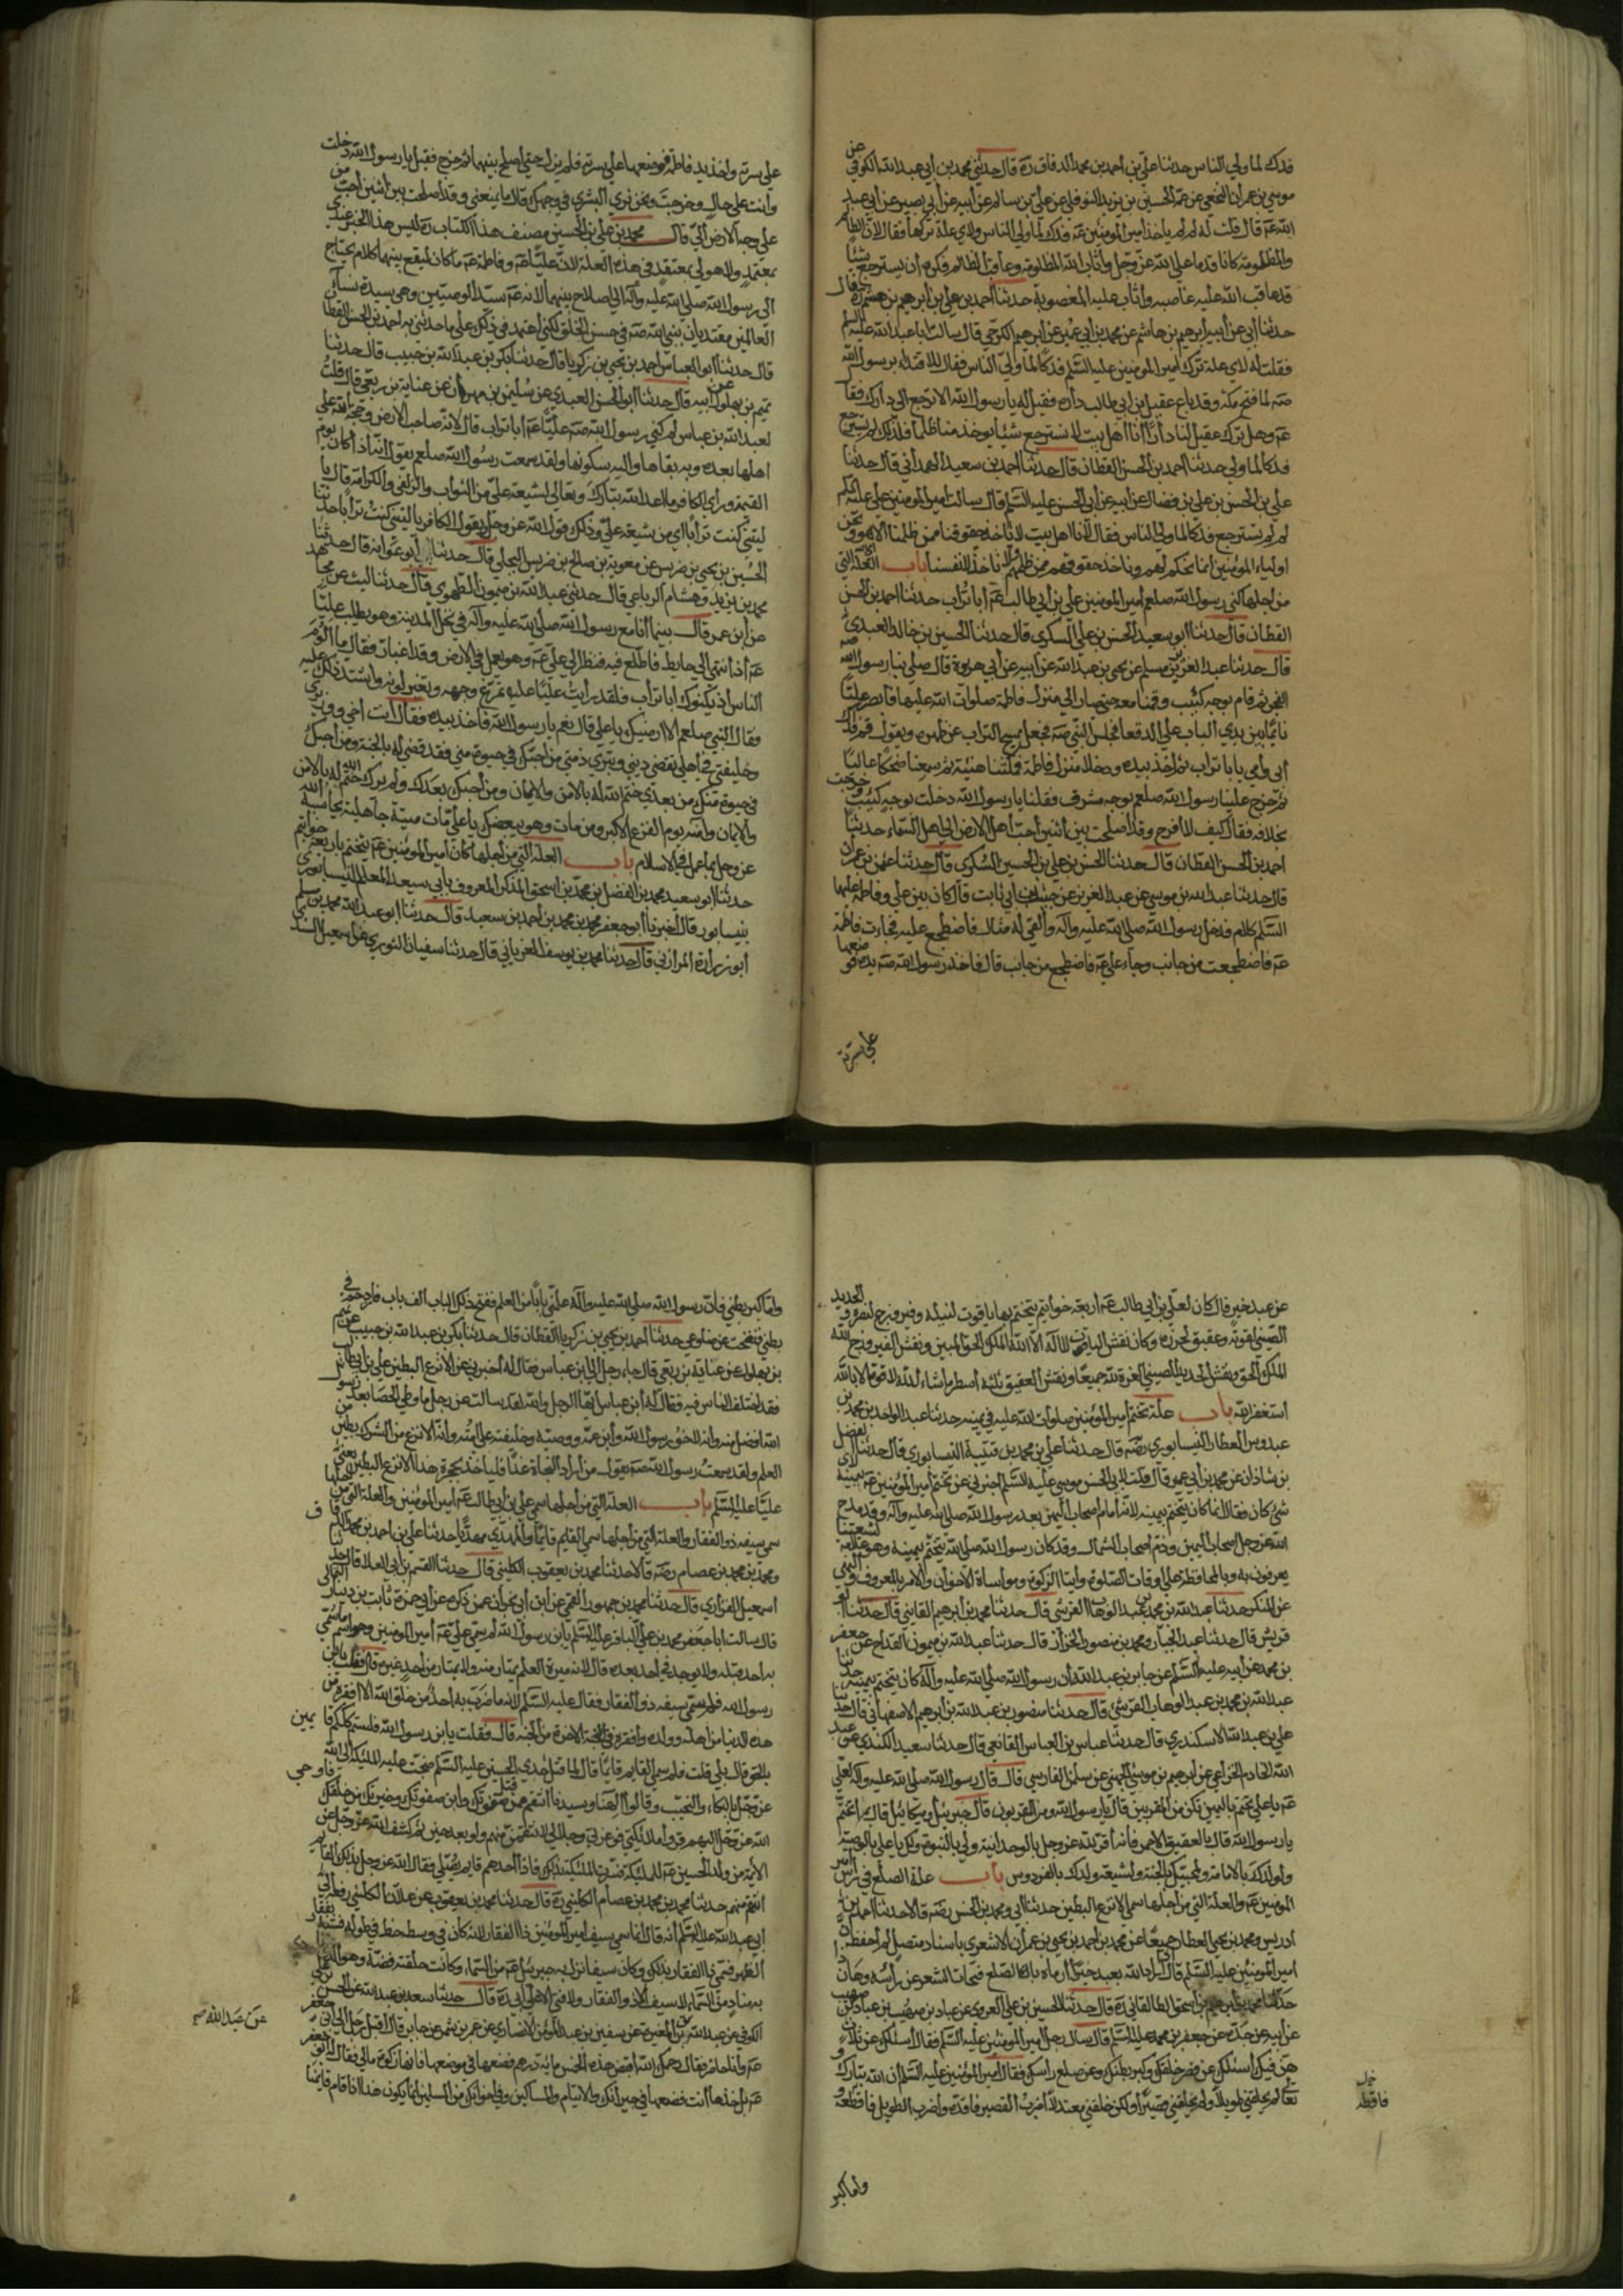 فدك لما ولي الناس حدثنا علي بن احمد بن محمد الدقاق ره قال حدثني محمد بن ابي عبد الله الكوفي عن
موسي بن عمران النخعي عن عمه الحسين بن يزيد النوفلي عن علي بن سالم عن ابيه عن ابي بصير عن ابي عبد
الله عه قال قلت له لم لم ياخذ امير المومنين عه فدك لما ولي الناس ولاي علة تركها فقال لان الظالم
والمظلومة كانا قدما علي الله عز وجل واثاب الله المظلومة وعاقب الظالم فكره ان يسترجع شيئا
قد عاقب الله عليه غاصبه واثاب عليه المغصوبة حدثنا احمد بن علي بن ابرهيم بن هشم ره قال
حدثنا ابي عن ابيه ابرهيم بن هاشم عن محمد بن ابي عمير عن ابرهيم الكرخي قال سالت ابا عبد الله عليه السلم
فقلت له لاي علة ترك امير المومنين عليه السلم فدكا لما ولي الناس فقال للاقتداء برسول الله
صه لما فتح مكة وقد باع عقيل بن ابي طالب داره فقيل له يا رسول الله الا ترجع الي دارك فقال
عه وهل ترك عقيل لنا دارا انا اهل بيت لا نسترجع شيئا يوخذ منا ظلما فلذلك لم يسترجع
فدكا لما ولي حدثنا احمد بن الحسن القطان قال حدثنا احمد بن سعيد الهمداني قال حدثنا
علي بن الحسن بن علي بن فضال عن ابيه عن ابي الحسن عليه السلم قال سالت امير المومنين علي عليه السلم
لم لم يسترجع فدكا لما ولي الناس فقال لانا اهل بيت لا ناخذ حقوقنا ممن ظلمنا الا هو ونحن
اولياء المومنين انما نحكم لهم وناخذ حقوقهم ممن ظلمهم ولا ناخذ لانفسنا باب العلة التي
من اجلها كني رسول الله صلعم امير المومنين علي بن ابي طالب عه ابا تراب حدثنا احمد بن الحسن
القطان قال حدثنا ابو سعيد الحسن بن علي السكري قال حدثنا الحسين بن خالد العبدي
قال حدثنا عبد العزيز بن مسلم عن يحيي بن عبد الله عن ابيه عن ابي هريرة قال صلي بنا رسول الله صه
الفجر ثم قام بوجه كئيب وقمنا معه حتي صار الي منزل فاطمة صلوات الله عليها فابصر عليا
نايما بين يدي الباب علي الدقعا فجلس النبي صه فجعل يمسح التراب عن ظهره ويقول قم فداك
ابي وامي يا با تراب ثم اخذ بيده ودخلا منزل فاطمة فمكثنا هنيئة ثم سمعنا ضحكا عاليا
ثم خرج علينا رسول الله صلعم بوجه مشرف فقلنا يا رسول الله دخلت بوجه كئيب وخرجت
بخلافه فقال كيف لا افرح وقد اصلحت بين اثنين احب اهل الارض الي اهل السماء حدثنا
احمد بن الحسن القطان قال حدثنا الحسن بن علي بن الحسين السكري قال حدثنا عثمن بن عمران
قال حدثنا عبد الله بن موسي عن عبد العزيز عن حبيب بن ابي ثابت قال كان بين علي وفاطمة عليها
السلم كلام فدخل رسول الله صلي الله عليه واله والقي له مثال فاضطجع عليه فجاءت فاطمة
عه فاضطجعت من جانب وجاء علي عه فاضطجع من جانب قال فاخذ رسول الله صه يده فوضعها
علي سرته
علي سرته واخذ يد فاطمة فوضعها علي سرته فلم يزل حتي اصلح بينهما ثم خرج فقيل يا رسول الله دخلت
وانت علي حال وخرجت ونحن نري البشري في وجهك قال ما يمنعني وقد اصلحت بين اثنين احب من
علي وجه الارض الي قال محمد بن علي بن الحسين مصنف هذا الكتاب ره ليس هذا الخبر عندي
بمعتمد ولا هو لي بمعتقد في هذه العلة لان عليا عه وفاطمة عه ما كان ليقع بينهما كلام يحتاج
الي رسول الله صلي الله عليه واله الي اصلاح بينهما لانه عه سيد الوصيين وهي سيدة نساء
العالمين مقتديان بنبي الله صه في حسن الخلق لكني اعتمد في ذلك علي ما حدثني به احمد بن الحسن القطان
قال حدثنا ابو العباس احمد بن يحيي بن زكريا قال حدثنا بكر بن عبد الله بن حبيب قال حدثنا
تميم بن بهلول عن ابيه قال حدثنا ابو الحسن العبدي عن سليمن بن مهران عن عباية بن ربعي قال قلت
لعبد الله بن عباس لم كني رسول الله صه عليا عه ابا تراب قال لانه صاحب الارض وحجة الله علي
اهلها بعده وبه بقاها واليه سكونها ولقد سمعت رسول الله صلعم يقول انه اذا كان يوم
القيمة وراي الكافر ما اعد الله تبارك وتعالي لشيعة علي من الثواب والزلفي والكرامة قال يا
ليتني كنت ترابا اي من شيعة علي وذلك قول الله عز وجل يقول الكافر يا ليتني كنت ترابا حدثنا
الحسين بن يحيي بن ضريس عن معوية بن صالح بن ضريس البجلي قال حدثنا ابو عوانة قال حدثنا
محمد بن يزيد وهشام الرباعي قال حدثني عبد الله بن ميمون الطهوي قال حدثنا ليث عن مجاهد
عن ابن عمر قال بينما انا مع رسول الله صلي الله عليه واله في نخل المدينة وهو يطلب عليا
عه اذ انتهي الي حايط فاطلع فيه فنظر الي علي عه وهو يعمل في الارض وقد اغبار فقال ما الوم
الناس ان يكنوك ابا تراب فلقد رايت عليا عليه تمرغ وجهه وتغير لونه واشتد ذلك عليه
فقال النبي صلعم الا ارضيك يا علي قال نعم يا رسول الله فاخذ بيده فقال انت اخي ووزيري
وخليفتي في اهلي تقضي ديني وتبري ذمتي من احبك في حيوة مني فقد قضي له بالجنة ومن احبك
في حيوة منك من بعدي ختم الله له بالامن والايمان ومن احبك بعدك ولم يرك ختم الله له بالامن
والايمان وامنه يوم الفزع الاكبر ومن مات وهو يبغضك يا علي مات ميتة جاهلية يحاسبه الله
عز وجل بما عمل في الاسلام باب العلة التي من اجلها كان امير المومنين عه يتختم باربعة خواتيم
حدثنا ابو سعيد محمد بن الفضل بن محمد بن اسحق المذكر المعروف بابي سعيد المعلم النيسابوري
بنيسابور قال اخبرنا ابو جعفر محمد بن محمد بن احمد بن سعيد قال حدثنا ابو عبد الله محمد بن مسلم
ابو زرارة الرازي قال حدثنا محمد بن يوسف الفريابي قال حدثنا سفيان الثوري عن اسمعيل السدي
عن عبد خير قال كان لعلي بن ابي طالب عه اربعة خواتيم يتختم بها ياقوت لنبله وفيروزج لنصره والحديد
الصيني لقوته وعقيق لحرزه وكان نقش الياقوت لا اله الا الله الملك الحق المبين ونقش الفيروزج الله
الملك الحق ونقش الحديد الصيني العزة لله جميعا ونقش العقيق ثلثة اسطر ما شاء الله لا قوة الا بالله
استغفر الله باب علة تختم امير المومنين صلوات الله عليه في يمينه حدثنا عبد الواحد بن محمد بن
عبدوس العطار النيسابوري رضه قال حدثنا علي بن محمد بن قتيبة النيسابوري قال حدثنا الفضل
بن شاذان عن محمد بن ابي عمير قال قلت لابي الحسن موسي عليه السلم اخبرني عن تختم امير المومنين عه بيمينه لاي
شئ كان فقال انما كان يتختم بيمينه لانه امام اصحاب اليمين بعد رسول الله صلي الله عليه واله وقد مدح
الله عز وجل اصحاب اليمين وذم اصحاب الشمال وقد كان رسول الله صلي الله يتختم بيمينه وهو علامة لشيعتنا
يعرفون به وبالمحافظة علي اوقات الصلوة وايتا الزكوة ومواساة الاخوان والامر بالمعروف والنهي
عن المنكر حدثنا عبد الله بن محمد بن عبد الوهاب القرشي قال حدثنا محمد بن ابرهيم القايني قال حدثنا ابو
قريش قال حدثنا عبد الجبار ومحمد بن منصور الخزاز قال حدثنا عبد الله بن ميمون القداح عن جعفر
بن محمد عن ابيه عليه السلم عن جابر بن عبد الله ان رسول الله صلي الله عليه واله كان يتختم بيمينه حدثنا
عبد الله بن محمد بن عبد الوهاب القرشي قال حدثنا منصور بن عبد الله بن ابرهيم الاصفهاني قال حدثنا
علي بن عبد الله الاسكندري قال حدثنا عباس بن العباس القانعي قال حدثنا سعيد الكندي عن عبد
الله الخادم الخزاعي عن ابرهيم بن موسي الجهني عن سلمن الفارسي قال قال رسول الله صلي الله عليه واله لعلي
عه يا علي تختم باليمين تكن من المقربين قال يا رسول الله ومن المقربون قال جبرئيل وميكائيل قال بم اتختم
يا رسول الله قال بالعقيق الاحمر فانه اقر لله عز وجل بالوحدانية ولي بالنبوة ولك يا علي بالوصية
ولولدك بالامامة ولمحبيك بالجنة ولشيعة ولدك بالفردوس باب علة الصلع في راس امير
المومنين عه والعلة التي من اجلها سمي الانزع البطين حدثنا ابي ومحمد بن الحسن رضه قالا حدثنا احمد بن
ادريس ومحمد بن يحيي العطار جميعا عن محمد بن احمد بن يحيي بن عمران الاشعري باسناد متصل لم احفظه ان
امير المومنين عليه السلم قال اذا اراد الله بعبد خيرا رماه بالصلع فتحات الشعر عن راسه وها انا ذا
حدثنا محمد بن ابرهيم بن اسحق الطالقاني ره قال حدثنا الحسين بن علي العدوي عن عباد بن صهيب بن عباد بن صهيب
عن ابيه عن جده عن جعفر بن محمد عليه السلم قال سال رجل امير المومنين عليه السلم فقال اسئلك عن ثلاث
هن فيك اسئلك عن قصر خلقك وكبر بطنك وعن صلع راسك فقال امير المومنين عليه السلم ان الله تبارك و
تعالي لم يخلقني طويلا ولم يخلقني قصيرا ولكن خلقني معتدلا اضرب القصير فاقده واضرب الطويل فاقطعه
فاقطه
واما كبر
واما كبر بطني فان رسول الله صلي الله عليه واله علمني بابا من العلم ففتح ذلك الباب الف باب فازدحم في
بطني فنفخت عن ضلوعي حدثنا احمد بن يحيي بن زكريا القطان قال حدثنا بكر بن عبد الله بن حبيب عن تميم
بن بهلول عن عباية بن ربعي قال جاء رجل الي ابن عباس فقال له اخبرني عن الانزع البطين علي بن ابي طالب
فقد اختلف الناس فيه فقال له ابن عباس ايها الرجل والله لقد سالت عن رجل ما وطي الحصا بعد رسول
الله افضل منه وانه لاخو رسول الله وابن عمه ووصيه وخليفته علي امته وانه الانزع من الشرك بطين من
العلم ولقد سمعت رسول الله صه يقول من اراد النجاة غدا فلياخذ بحجزة هذا الانزع البطين يعني
عليا عليه السلم باب العلة التي من اجلها سمي علي بن ابي طالب عه امير المومنين والعلة التي من اجلها
سمي سيفه ذو الفقار والعلة التي من اجلها سمي القايم قايما والمهدي مهديا حدثنا علي بن احمد بن محمد الدقاق
ومحمد بن محمد بن عصام رضه قالا حدثنا محمد بن يعقوب الكليني قال حدثنا القسم بن ابي العلا قال حدثنا
اسمعيل الفزاري قال حدثنا محمد بن جمهور العمي عن ابن ابي نجران عمن ذكره عن ابي حمزة ثابت بن دينار الثمالي
قال سالت ابا جعفر محمد بن علي الباقر عليه السلم يا بن رسول الله لم سمي علي عه امير المومنين وهو اسم ما سمي
به احد قبله ولا يحل لاحد بعده قال لانه ميرة العلم يمتار منه ولا يمتار من احد غيره قال فقلت يا بن
رسول الله فلم سمي سيفه ذو الفقار فقال عليه السلم لانه ما ضرب به احدا من خلق الله الا افقره من
هذه الدنيا من اهله وولده وافقره في الاخرة من الجنة قال فقلت يا بن رسول الله فلستم كلكم قايمين
بالحق قال بلي قلت فلم سمي القايم قايما قال لما قتل جدي الحسين عليه السلم ضجت عليه الملئكة الي الله
عز وجل بالبكاء والنحيب وقالوا الهنا وسيدنا انتقم ممن قتل صفوتك وابن صفوتك وخيرتك من خلقك فاوحي
الله عز وجل اليهم قروا ملائكتي فوعزتي وجلالي لانتقمن منهم ولو بعد حين ثم كشف الله عز وجل عن
الائمة من ولد الحسين عه للملئكة فسرت الملئكة بذلك فاذا احدهم قايم يصلي فقال الله عز وجل بذلك القايم
انتقم منهم حدثنا محمد بن محمد بن عصام الكليني ره قال حدثنا محمد بن يعقوب عن علان الكليني رفعه الي
ابي عبد الله عليه السلم انه قال انما سمي سيف امير المومنين ذا الفقار لانه كان في وسطه خط في طوله فشبه بفقار
الظهر فسمي ذا الفقار بذلك وكان سيفا نزل به جبرئيل عه من السماء وكانت حلقته فضة وهو الذي نادي
به مناد من السماء لا سيف الا ذو الفقار ولا فتي الا علي ابي ره قال حدثنا سعد بن عبد الله عن الحسن بن علي
الكوفي عن عبد الله بن المغيرة عن سفين بن عبد المومن الانصاري عن عمر بن شمر عن جابر قال اقبل رجل الي ابي جعفر
عه وانا حاضر فقال رحمك الله اقبض هذه الخمس مائة درهم فضعها في موضعها فانها زكوة مالي فقال ابو جعفر
عه بل خذها انت فضعها في جيرانك والايتام والمساكين وفي اخوانك من المسلمين انما يكون هذا اذا قام قايمنا
عن عبد الله